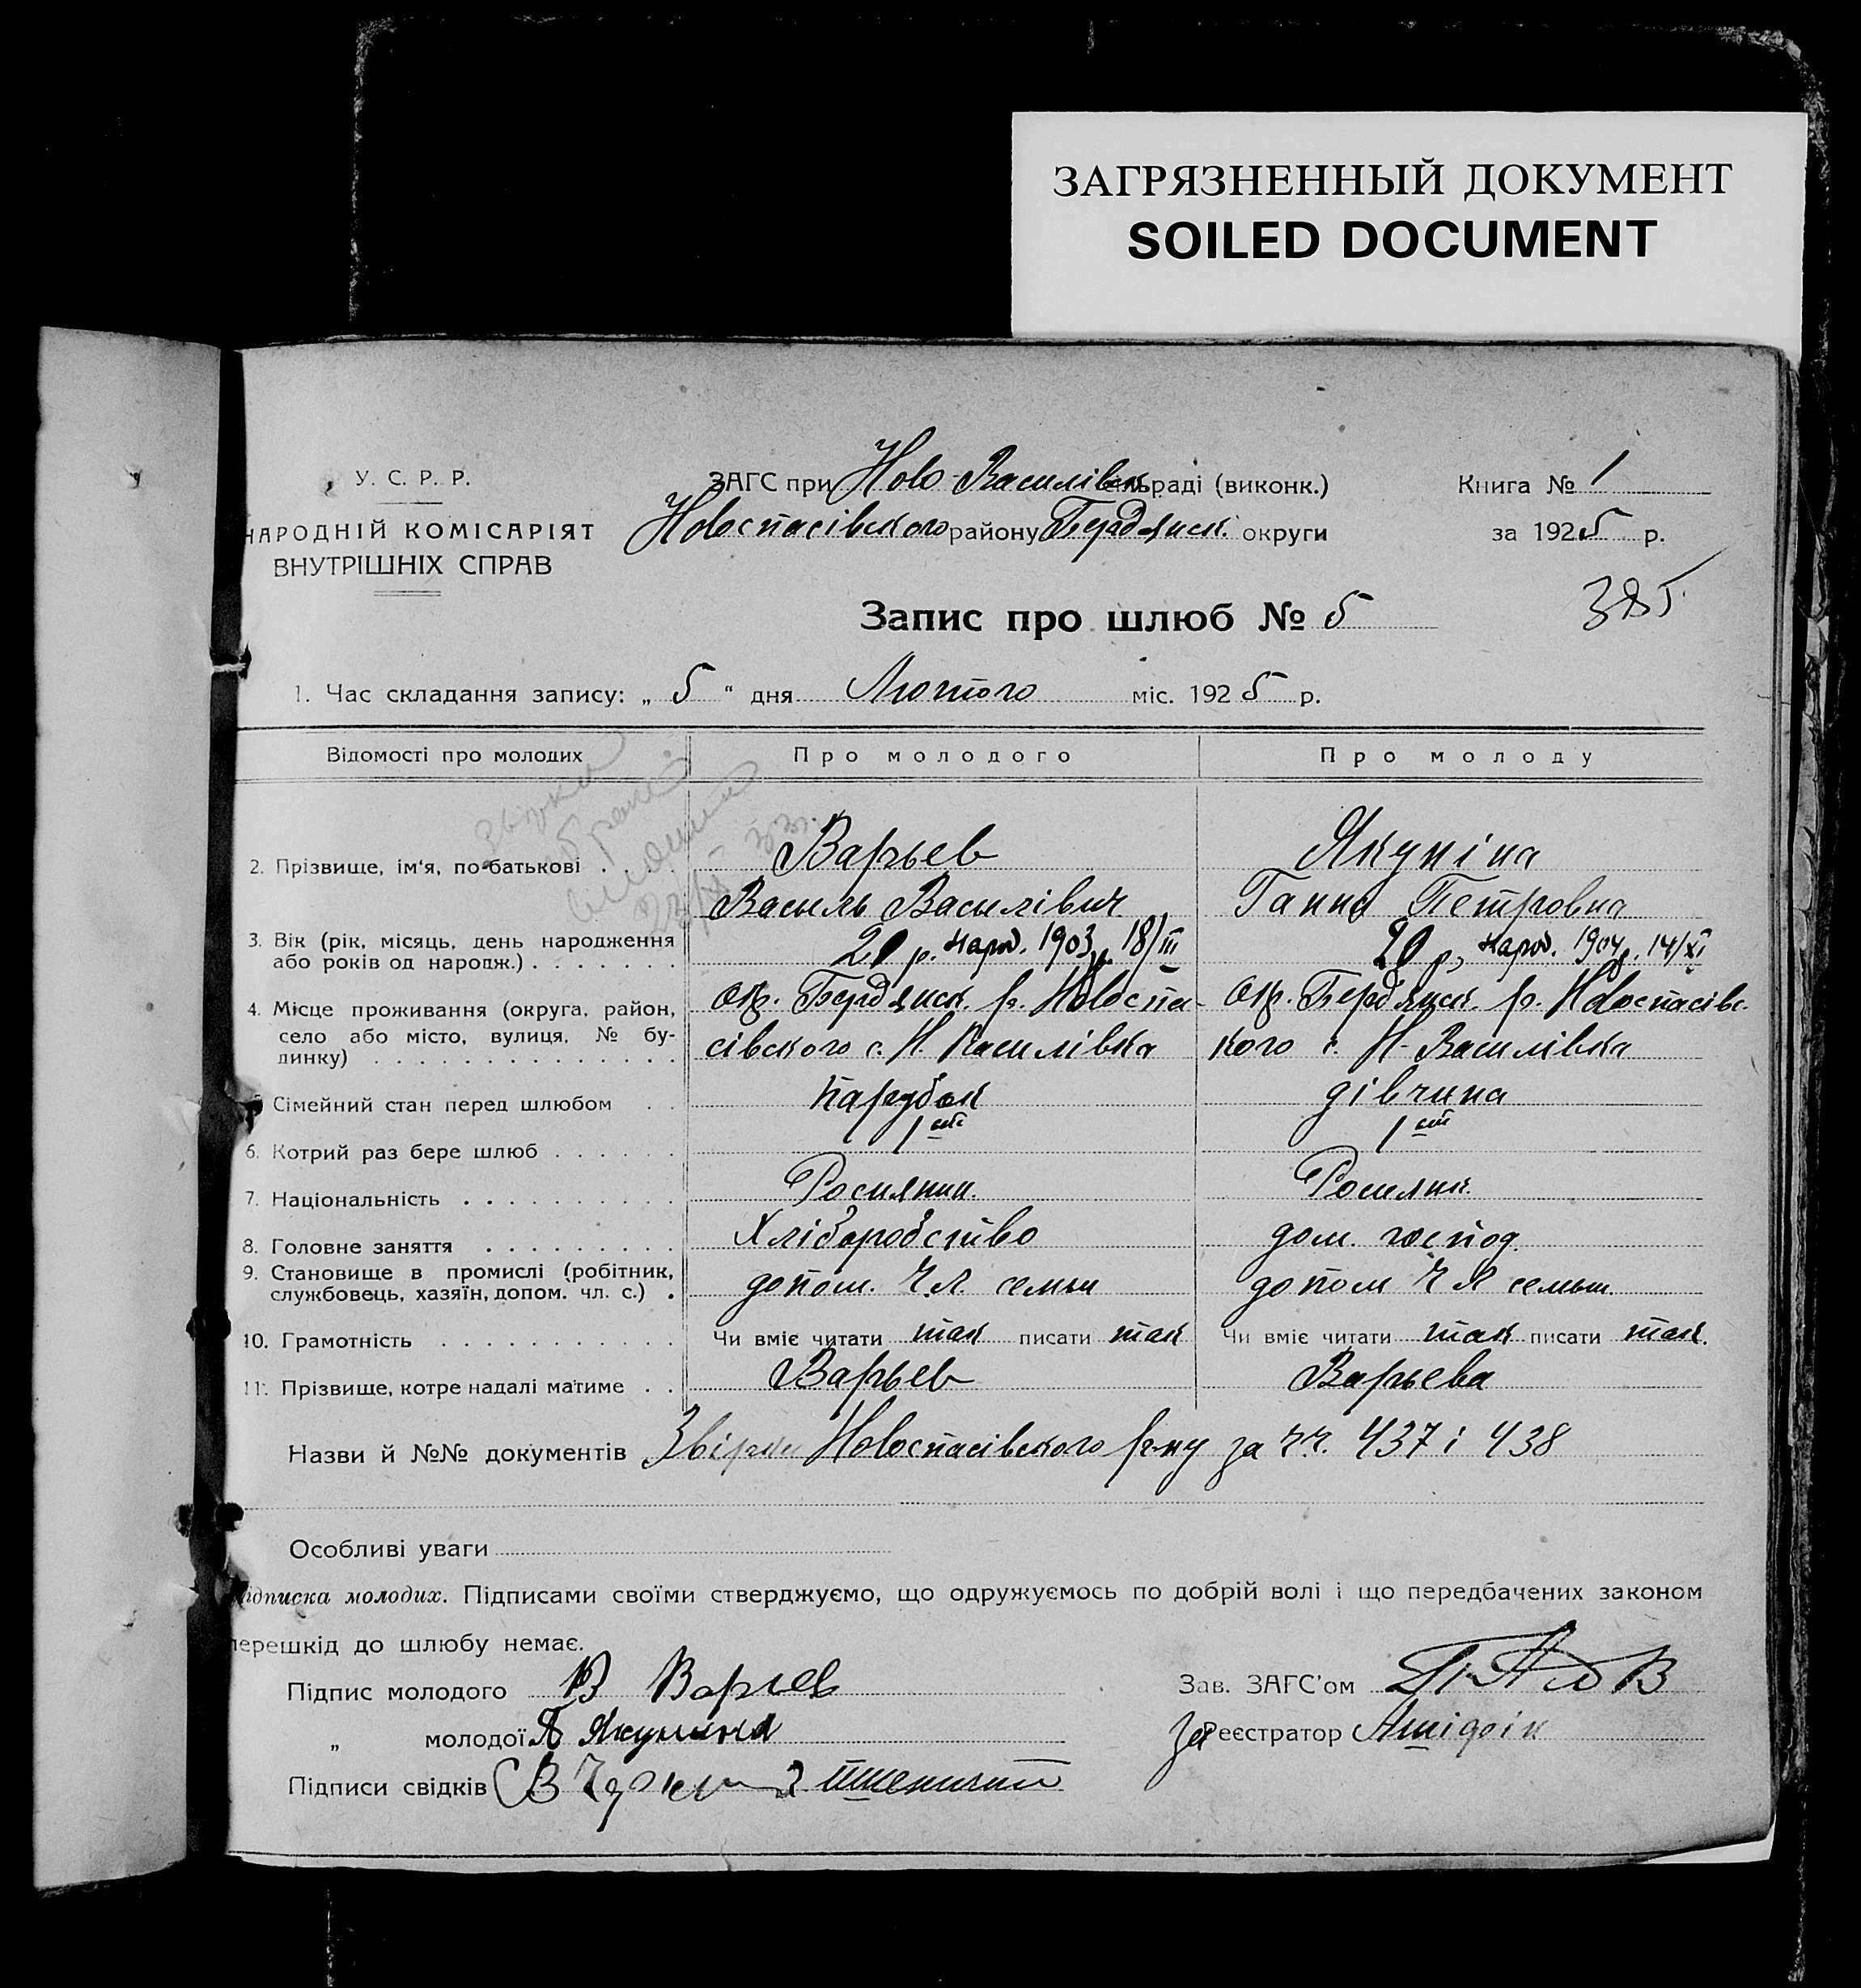 ЗАГРЯЗНЕННЫЙ ДОКУМЕНТ
SOILED DOCUMENT
У. С. Р. Р.
НАРОДНІЙ КОМІСАРІЯТ
ВНУТРІШНІХ СПРАВ
ЗАГС при Ново-Василівк. сільраді (виконк.)
Новоспасівского району Бердянск. округи
Книга № 1
за 1925 р.
385
Запис про шлюб № 5
1. Час складання запису: „ 5 “ дня Лютого міс. 1925 р.
Відомості про молодих Про молодого Про молоду
2. Прізвище, ім'я, по-батькові . Варьев Якуніна
Василь Василівич Ганна Петровна
3. Вік (рік, місяць, день народження або років од народж.) . . . . . . . 20 р. народ. 1903 р. 18/III 20 р, народ. 1904 р. 14/XI
4. Місце проживання (округа, район, село або місто, вулиця, № будинку) . . . . . . . . . . . . . .
Окр. Бердянск. р. Новоспа- Окр. Бердянск. р. Новоспасівс-
сівского с. Н. Василівка кого с. Н-Василівка
5. Сімейний стан перед шлюбом . . Парубок дівчина
6. Котрий раз бере шлюб . . . . . . 1ий 1ий
7. Національність . . . . . . . . . . Росиянин. Росиянк.
8. Головне заняття . . . . . . . . . Хліборобство дом. господ.
9. Становище в промислі (робітник, службовець, хазяїн, допом. чл. с.) . допом. Ч.Л. семьи допом Ч Л семьи.
10. Грамотність . . . . . . . . . . . Чи вміє читати так писати так Чи вміє читати так писати так.
11. Прізвище, котре надалі матиме . . Варьев Варьева
Назви й №№ документів Звірки Новоспасівского р-ну за ч.ч. 437 і 438
Особливі уваги
Підписка молодих. Підписами своїми стверджуємо, що одружуємось по добрій волі і що передбачених законом
перешкід до шлюбу немає.
Підпис молодого В Варьев
„ молодої Якунина
Підписи свідків
Зав. ЗАГС'ом
За Реєстратор